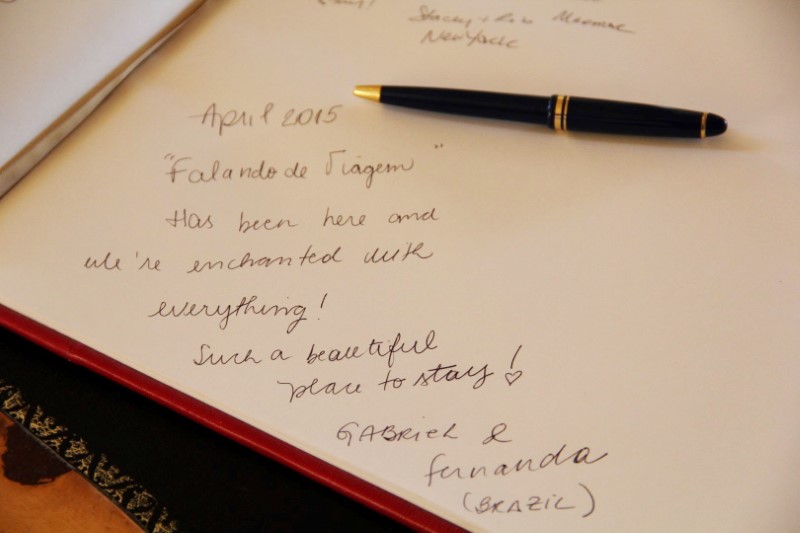 New York
April 2015
"Falando de Viagem"
Has been here and
we're enchanted with
everything!
Such a beautiful
place to stay! ♡
GABRIEL &
Fernanda
(BRAZIL)